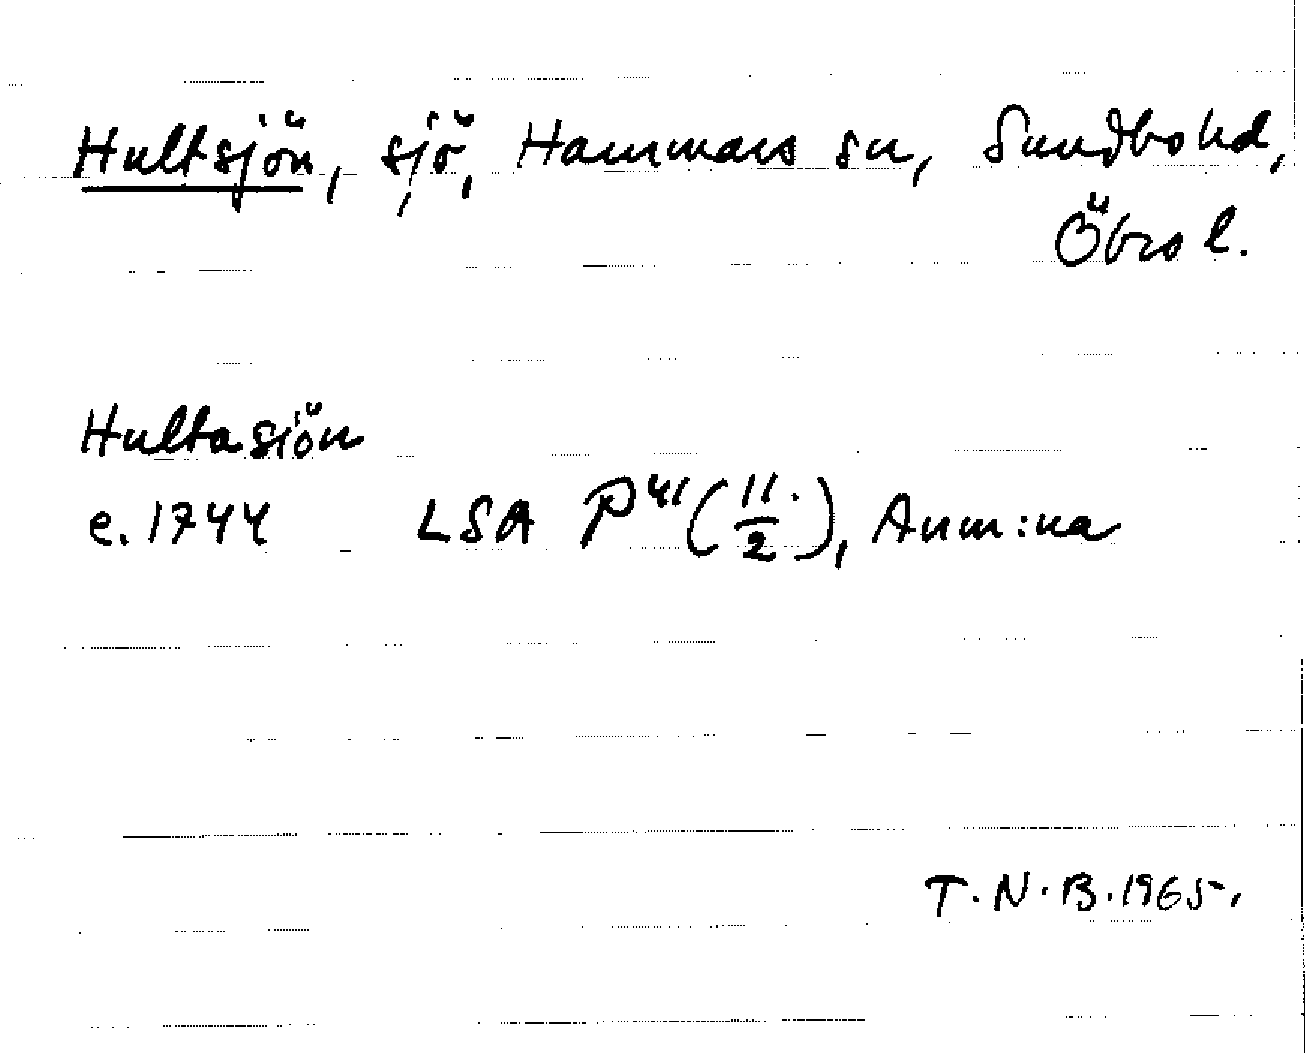 Hultsjön, sjö, Hammars sn, Sundbo hd,
Öbro l.
Hultasiön
e. 1744 LSA P⁴¹(11/2), Anm:na
T.N.B. 1965.